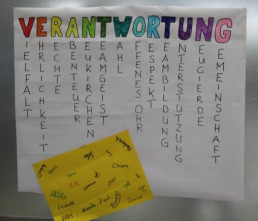 VERANTWORTUNG
IELFALT
HRLICHKEIT
ECHTE
BENTEUER
EUKIRCHEN
EAMGEIST
AHL
FFENES OHR
ESPEKT
EAMBILDUNG
NTERSTÜTZUNG
EUGIERDE
EMEINSCHAFT